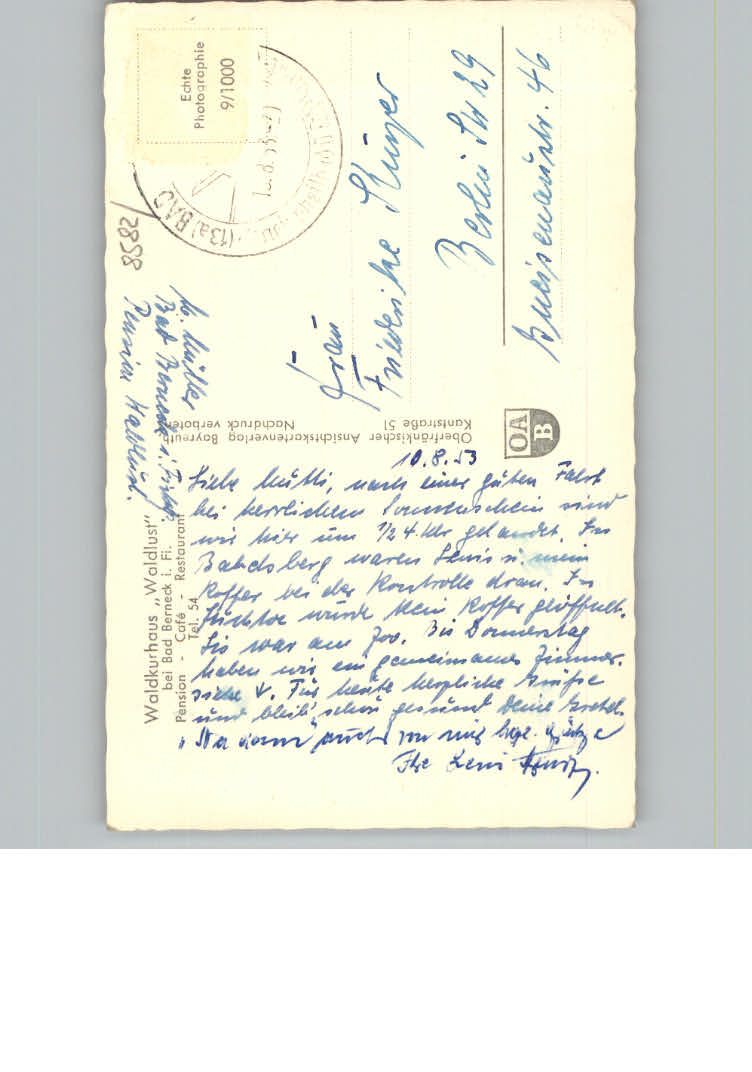 Waldkurhaus „Waldlust"
bei Bad Berneck i. Fi.
Pension - Café - Restaurant
Tel. 54
Müller
Bad Berneck i. Fichtg.
Pension Waldlust.
8582
10.8.53
Liebe Mutti, nach einer guten Fahrt
bei herrlichem Sonnenschein sind
wir hier um 1/2 4 Uhr gelandet. In
Babelsberg waren Lenis u. mein
Koffer bei der Kontrolle dran. In
wurde kein Koffer geöffnet.
war am Zoo. Bis Donnerstag
haben wir ein gemeinsames Zimmer.
siehe V. Für heute herzliche Grüße
und bleib' schön gesund Deine Gretel.
auch von mir herzl. Grüße
Ihre Leni
Oberfränkischer Ansichtskartenverlag Bayreuth
Kantstraße 51
Nachdruck verboten
OA
B
Echte
Photographie
9/1000
(13a) BAD
Frau
Friederike
Berlin SW 29
Gneisenaustr. 46